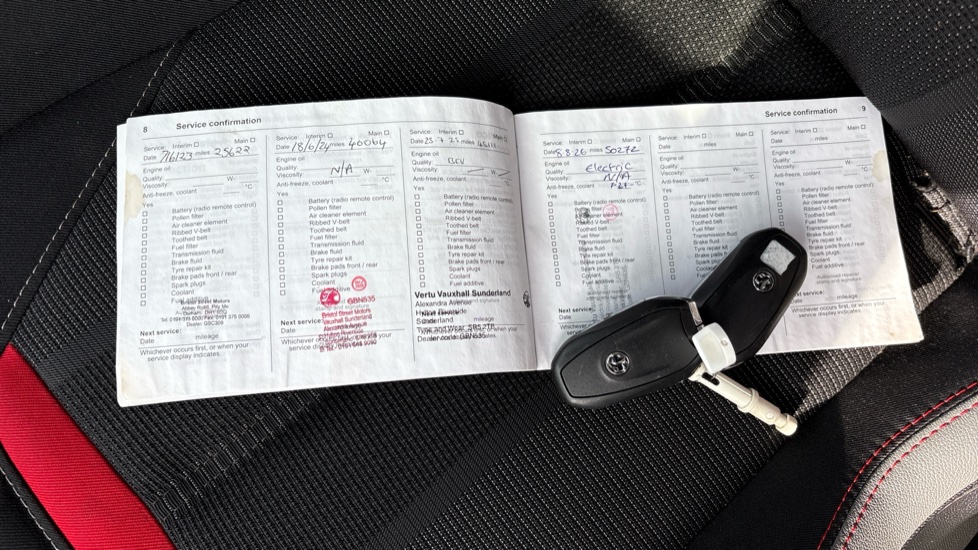 8 Service confirmation
Service: Interim ☐ Main ☐
Date 7/6/23 miles 25622
Engine oil
Quality: W-
Viscosity: °C
Anti-freeze, coolant
Yes
☐ Battery (radio remote control)
☐ Pollen filter
☐ Air cleaner element
☐ Ribbed V-belt
☐ Toothed belt
☐ Fuel filter
☐ Transmission fluid
☐ Brake fluid
☐ Tyre repair kit
☐ Brake pads front / rear
☐ Spark plugs
☐ Coolant
☐ Fuel additive
Bristol Street Motors
Next service:
Date mileage
Whichever occurs first, or when your
service display indicates.
Service: Interim ☐ Main ☐
Date 18/6/24 miles 40064
Engine oil
Quality: N/A W-
Viscosity: °C
Anti-freeze, coolant
Yes
☐ Battery (radio remote control)
☐ Pollen filter
☐ Air cleaner element
☐ Ribbed V-belt
☐ Toothed belt
☐ Fuel filter
☐ Transmission fluid
☐ Brake fluid
☐ Tyre repair kit
☐ Brake pads front / rear
☐ Spark plugs
☐ Coolant
☐ Fuel additive
GBN535
Bristol Street Motors
Vauxhall Sunderland
Next service:
Date
Whichever occurs first, or when your
Service: Interim ☐ Main ☐
Date miles
Engine oil
Quality: BEV
Viscosity: W-
Anti-freeze, coolant °C
Yes
☐ Battery (radio remote control)
☐ Pollen filter
☐ Air cleaner element
☐ Ribbed V-belt
☐ Toothed belt
☐ Fuel filter
☐ Transmission fluid
☐ Brake fluid
☐ Tyre repair kit
☐ Brake pads front / rear
☐ Spark plugs
☐ Coolant
☐ Fuel additive
Vertu Vauxhall Sunderland
Alexandra Avenue
Sunderland
mileage
Tyne and Wear, SR5 2TH
Dealer code
Service confirmation 9
Service: Interim ☐ Main ☐
Date miles 50272
Engine oil
Quality: Electric
Viscosity: N/A
Anti-freeze, coolant °C
Yes
☐ Battery (radio remote control)
☐ Pollen filter
☐ Air cleaner element
☐ Ribbed V-belt
☐ Toothed belt
☐ Fuel filter
☐ Transmission fluid
☐ Brake fluid
☐ Tyre repair kit
☐ Brake pads front / rear
☐ Spark plugs
☐ Coolant
☐ Fuel additive
Next service:
Date
Service: Interim ☐ Main ☐
Date miles
Engine oil
Quality: W-
Viscosity: °C
Anti-freeze, coolant
Yes
☐ Battery (radio remote control)
☐ Pollen filter
☐ Air cleaner element
☐ Ribbed V-belt
☐ Toothed belt
☐ Fuel filter
☐ Transmission fluid
Service: Interim ☐ Main ☐
Date miles
Engine oil
Quality: W-
Viscosity: °C
Anti-freeze, coolant
Yes
☐ Battery (radio remote control)
☐ Pollen filter
☐ Air cleaner element
☐ Ribbed V-belt
Toothed belt
Fuel filter
Transmission fluid
Brake fluid
Tyre repair kit
Brake pads front / rear
Spark plugs
Coolant
Fuel additive
Authorised repairer
stamp and signature
service:
mileage
occurs first, or when your
display indicates.